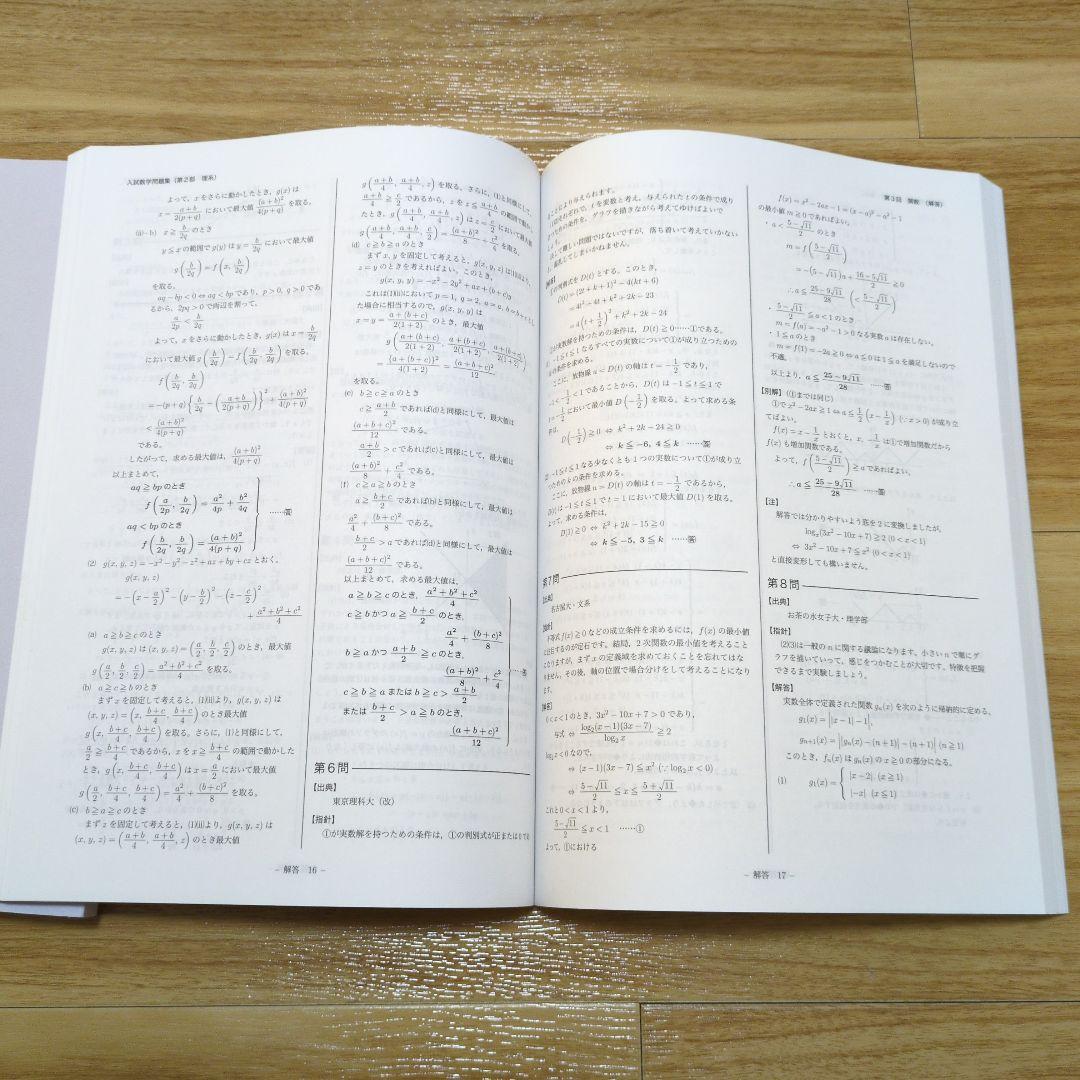 入試数学問題集（第2部　理系）
よって，xをさらに動かしたとき，g(x) は
x = (a+b)/(2(p+q)) において最大値 (a+b)²/(4(p+q)) を取る．
(ii)-b) x ≧ b/2q のとき
y ≦ x の範囲で g(y) は y = b/2q において最大値
g(b/2q) = f(x, b/2q)
を取る．
aq − bp < 0 ⇔ aq < bp であり，p > 0, q > 0 であ
るから，2pq > 0 で両辺を割って，
a/2p < b/2q
よって，xをさらに動かしたとき，g(x) は x = b/2q
において最大値 g(b/2q) − f(b/2q, b/2q) を取る．
f(b/2q, b/2q)
= −(p+q){b/2q − ((a+b)/(2(p+q)))}² + (a+b)²/(4(p+q))
< (a+b)²/(4(p+q))
である．
したがって，求める最大値は，(a+b)²/(4(p+q))
以上まとめて，
aq ≧ bp のとき
f(a/2p, b/2q) = a²/4p + b²/4q
……答
aq < bp のとき
f(b/2q, b/2q) = (a+b)²/(4(p+q))
(2) g(x, y, z) = −x² − y² − z² + ax + by + cz とおく．
g(x, y, z)
= −(x − a/2)² − (y − b/2)² − (z − c/2)²
+ (a²+b²+c²)/4
(a) a ≧ b ≧ c のとき
g(x, y, z) は (x, y, z) = (a/2, b/2, c/2) のとき，最大値
g(a/2, b/2, c/2) = (a²+b²+c²)/4 を取る．
(b) a ≧ c ≧ b のとき
まず x を固定して考えると，(1)(ii)より，g(x, y, z) は
(x, y, z) = (x, (b+c)/4, (b+c)/4) のとき最大値
g(x, (b+c)/4, (b+c)/4) を取る．さらに，(1)と同様にして，
a/2 ≧ (b+c)/4 であるから，x を x ≧ (b+c)/4 の範囲で動かした
とき，g(x, (b+c)/4, (b+c)/4) は x = a/2 において最大値
g(a/2, (b+c)/4, (b+c)/4) = a²/4 + (b+c)²/8 を取る．
(c) b ≧ a ≧ c のとき
まず z を固定して考えると，(1)(ii)より，g(x, y, z) は
(x, y, z) = ((a+b)/4, (a+b)/4, z) のとき最大値
g((a+b)/4, (a+b)/4, z) を取る．さらに，(1)と同様にして，
(a+b)/4 ≧ c/2 であるから，z を z ≦ (a+b)/4 の範囲で動かし
たとき，g((a+b)/4, (a+b)/4, z) は z = c/2 において最大値
g((a+b)/4, (a+b)/4, c/2) = (a+b)²/8 + c²/4 を取る．
(d) c ≧ b ≧ a のとき
まず x, y を固定して考えると，g(x, y, z) は(1)(ii)より，
z = y のときを考えればよい．このとき，
g(x, y, y) = −x² − 2y² + ax + (b+c)y
これは(1)(ii)において p = 1, q = 2, a = a, b = b + c とし
た場合に相当するので，g(x, y, y) は
x = y = (a+(b+c))/(2(1+2)) のとき，最大値
g((a+(b+c))/(2(1+2)), (a+(b+c))/(2(1+2)), (a+(b+c))/(2(1+2)))
= (a+(b+c))²/(4(1+2)) = (a+b+c)²/12
を取る．
(e) b ≧ c ≧ a のとき
c ≧ (a+b)/2 であれば(d)と同様にして，最大値は
(a+b+c)²/12 である．
(a+b)/2 > c であれば(c)と同様にして，最大値は
(a+b)²/8 + c²/4 である．
(f) c ≧ a ≧ b のとき
a ≧ (b+c)/2 であれば(b)と同様にして，最大値は
a²/4 + (b+c)²/8 である．
(b+c)/2 > a であれば(d)と同様にして，最大値は
(a+b+c)²/12 である．
以上まとめて，求める最大値は，
a ≧ b ≧ c のとき，(a²+b²+c²)/4
a ≧ c ≧ b かつ a ≧ (b+c)/2 のとき，
a²/4 + (b+c)²/8
b ≧ a かつ (a+b)/2 ≧ c のとき，
(a+b)²/8 + c²/4
……答
c ≧ b ≧ a または b ≧ c > (a+b)/2
または (b+c)/2 > a ≧ b のとき，
(a+b+c)²/12
第6問
【出典】
東京理科大（改）
【指針】
①が実数解を持つための条件は，①の判別式が正または0で
− 解答　16 −
第3回　関数　（解答）
ことにより与えられます．
tを変数と考え，与えられたtの条件で成り
の条件を，グラフを描きながら考えてゆけばよいで
しょう．
難しい問題ではないですが，落ち着いて考えていかない
混乱してしまいかねません．
判別式を D(t) とする．このとき，
D(t) = (2t + k + 1)² − 4(kt + 6)
= 4t² + 4t + k² + 2k − 23
= 4(t + 1/2)² + k² + 2k − 24
実数解を持つための条件は，D(t) ≧ 0……①である．
−1 ≦ t ≦ 1 なるすべての実数について①が成り立つための
の条件を求める．
ここに，放物線 u = D(t) の軸は t = −1/2 であり，
−1 < −1/2 < 1 であることから，D(t) は −1 ≦ t ≦ 1 で
t = −1/2 において最小値 D(−1/2) を取る．よって求める条
件は，
D(−1/2) ≧ 0 ⇔ k² + 2k − 24 ≧ 0
⇔ k ≦ −6, 4 ≦ k ……答
−1 ≦ t ≦ 1 なる少なくとも1つの実数について①が成り立
つための k の条件を求める．
ここに，放物線 u = D(t) の軸は t = −1/2 であるから，
D(t) は −1 ≦ t ≦ 1 で t = 1 において最大値 D(1) を取る．
よって，求める条件は，
D(1) ≧ 0 ⇔ k² + 2k − 15 ≧ 0
⇔ k ≦ −5, 3 ≦ k ……答
第7問
【出典】
名古屋大・文系
【指針】
不等式 f(x) ≧ 0 などの成立条件を求めるには，f(x) の最小値
に注目するのが定石です．結局，2次関数の最小値を考えること
になりますが，まず x の定義域を求めておくことを忘れてはな
りません．その後，軸の位置で場合分けをして考えることになり
ます．
【解答】
0 < x < 1 のとき，3x² − 10x + 7 > 0 であり，
与式 ⇔ log₂(x−1)(3x−7)/log₂x ≧ 2
log₂x < 0 なので，
⇔ (x−1)(3x−7) ≦ x² (∵ log₂x < 0)
⇔ (5−√11)/2 ≦ x ≦ (5+√11)/2
これと 0 < x < 1 より，
(5−√11)/2 ≦ x < 1 ……①
よって，①における
f(x) = x² − 2ax − 1 = (x − a)² − a² − 1
の最小値 m ≧ 0 であればよい．
・a < (5−√11)/2 のとき
m = f((5−√11)/2)
= −(5−√11)a + (16−5√11)/2 ≧ 0
∴ a ≦ (25−9√11)/28 (< (5−√11)/2)
・(5−√11)/2 ≦ a < 1 のとき
m = f(a) = −a² − 1 > 0 なる実数 a は存在しない．
・1 ≦ a のとき
m = f(1) = −2a ≧ 0 ⇔ a ≦ 0 は 1 ≦ a を満足しないので
不適．
以上より，a ≦ (25−9√11)/28 ……答
【別解】（①までは同じ）
①で x² − 2ax ≧ 1 ⇔ a ≦ 1/2(x − 1/x) (∵ x > 0) が成り立
てばよい．
f(x) = x − 1/x とおくと，x, −1/x は①で増加関数だから
f(x) も増加関数である．
よって，f((5−√11)/2) ≧ a であればよい．
∴ a ≦ (25−9√11)/28 ……答
【注】
解答では分かりやすいよう底を2に変換しましたが，
logₓ(3x² − 10x + 7) ≧ 2 (0 < x < 1)
⇔ 3x² − 10x + 7 ≦ x² (0 < x < 1)
と直接変形しても構いません．
第8問
【出典】
お茶の水女子大・理学部
【指針】
(2)(3)は一般の n に関する議論になります．小さい n で順にグ
ラフを描いていって，感じをつかむことが大切です．特徴を把握
できるまで実験しましょう．
【解答】
実数全体で定義された関数 gₙ(x) を次のように帰納的に定める．
g₁(x) = ||x − 1| − 1|,
gₙ₊₁(x) = ||gₙ(x) − (n+1)| − (n+1)| (n ≧ 1)
このとき，fₙ(x) は gₙ(x) の x ≧ 0 の部分になる．
(1) g₁(x) = { |x − 2| (x ≧ 1)
|−x| (x ≦ 1)
− 解答　17 −